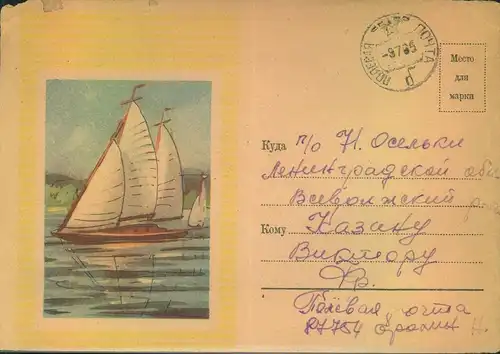 ПОЛЕВАЯ ПОЧТА
-9765
Место
для
марки
Куда п/о Н. Осельки
Ленинградской обл.
Всеволжский
Кому Казану
Виктору
Гр.
Полевая почта